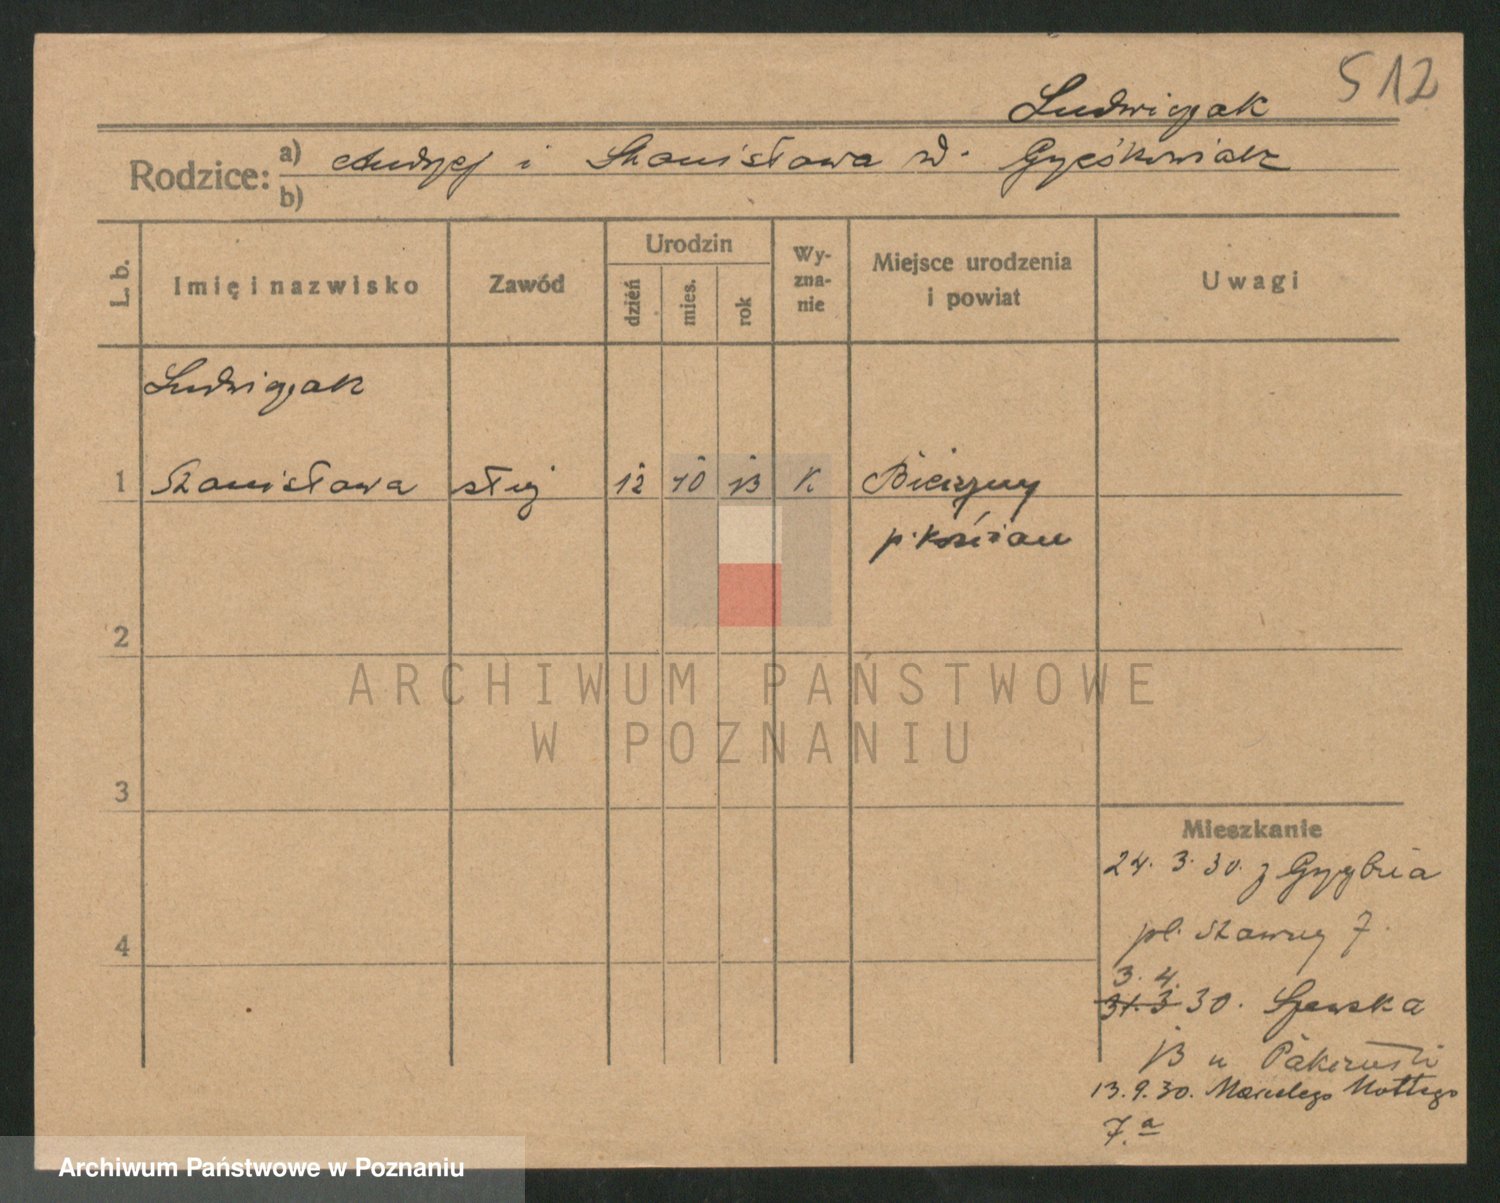 512
Ludwiczak
Rodzice: a) Andrzej i Stanisława d. Grześkowiak
b)
L. b.
Imię i nazwisko
Zawód
Urodzin
dzień
mies.
rok
Wy-
zna-
nie
Miejsce urodzenia
i powiat
Uwagi
Ludwiczak
1 Stanisława służ 12 10 13 K.
p. Kościan
2
3
4
Mieszkanie
24. 3. 30. z Grzybna
pl. Stawny 7.
3. 4.
31. 3 30. Szewska
13 u
13. 9. 30. Marcelego Mottego
7.a
ARCHIWUM PAŃSTWOWE
W POZNANIU
Archiwum Państwowe w Poznaniu